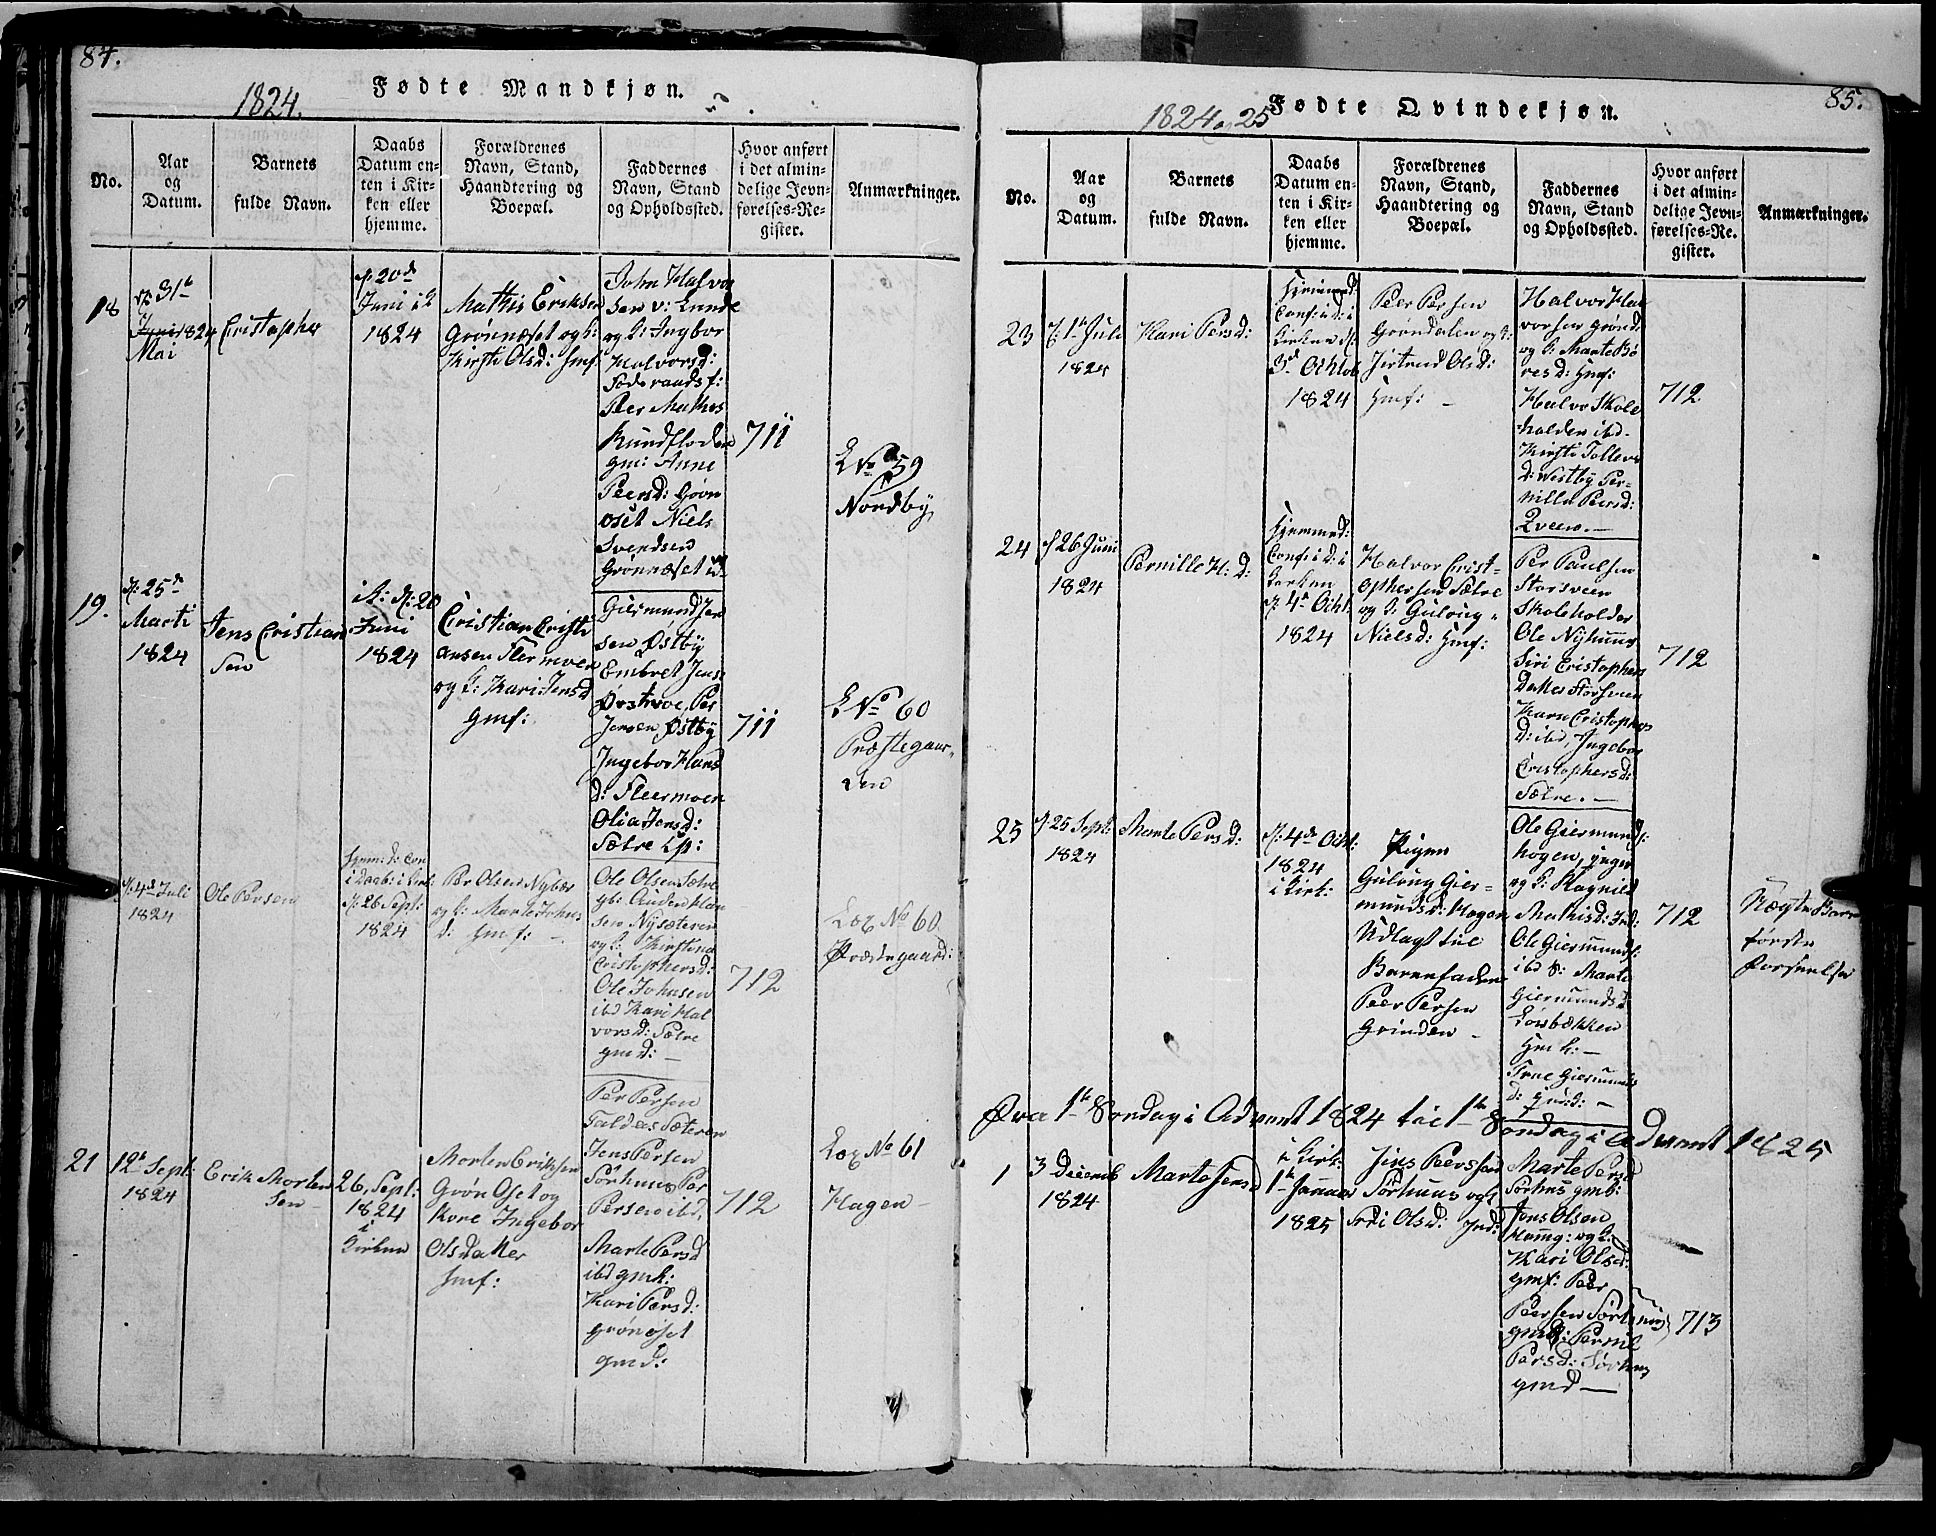 84.
1824.
Fødte Mandkjøn.
No.
Aar
og
Datum.
Barnets
fulde Navn.
Daabs
Datum en-
ten i Kir-
ken eller
hjemme.
Forældrenes
Navn, Stand,
Haandtering og
Boepæl.
Faddernes
Navn, Stand
og Opholdssted.
Hvor anført
i det almin-
delige Jevn-
førelses-Re-
gister.
Anmærkninger.
18
31te
Juni 1824
Mai
Cristopher
20d
Juni i K
1824
Mathis Eriksen
Grønnæset og k:
Kirsti Olsd: Hmf:
John Halvor
sen v: Lunde
og k: Ingebor
Halvorsd:
Peer Mathis
Rundfloden
gm: Anne
Peersd: Grøn
oset Niels
Svendsen
Grønnæset ibd
711
LNo 59
Nordby
19.
25d
Marti
1824
Jens Cristian
Sen
i K: d: 20
Juni
1824
Cristian Cristi
ansen Flermoen
og k: Kari Jensd
gmf:
Giermund Jen
sen Østby
Embret Jens:
Østmoe, Per
Jensen Østby
Ingebor Hans
d: Fleermoen
Olia Jensd:
Sætre
711
LNo 60
Præstegaar-
den
4d Juli
1824
Ole Persen
Hjem: d: Con
i Daab: i Kirk:
d: 26 Sept:
1824
Per Olsen Nybær
og k: Marte Johns
d: Hmf: -
Ole Olsen Sætre
gb: Guden Han
sen Nysæteren
og k: Kirstine
Cristophersd:
Ole Johnsen
ibd Kari Hal
vorsd: Sætre
gmd: -
712
Lox No 60
Præstegaard:
21
12te Sept:
1824
Erik Morten
Sen
26, Sept:
1824
i
Kirken
Morten Eriksen
Grøn Oset og
Kone Ingebor
Olsdatter
Hmf:
Per Persen
Sæteren
Jens Persen
Sørhuus Per
Persen ibd,
Marte Persd
ibd gmk:
Kari Persd:
grønoset
gmd:
712
Lox No 61
Hagen -
85.
1824 & 25
Fødte Qvindekjøn.
No.
Aar
og
Datum.
Barnets
fulde Navn.
Daabs
Datum en-
ten i Kir-
ken eller
hjemme.
Forældrenes
Navn, Stand,
Haandtering og
Boepæl.
Faddernes
Navn, Stand
og Opholdssted.
Hvor anført
i det almin-
delige Jevn-
førelses-Re-
gister.
Anmærkninger.
23
1te Juli
1824
Kari Persd:
Hjemmed:
Conf: i d: i
Kirken d:
3d Octob
1824
Peer Persen
Grøndalen og k:
Jertrud Olsd:
Hmf: -
Halvor Hal
vorsen grønd
og k: Marte Bø
resd: Hmf:
Halvor Skole
holder ibd-
Kirsti Tollevs
d: Westby Per-
nilla Persd:
Qveen. -
712
24
26 Juni
1824
Pernille H: d:
Hjemmed:
Conf: i d: i
Kerken
d: 4de Ocht:
1824
Halvor Crist-
ophersen Sætre
og k: Guloug
Nielsd: Hmf:
Per Paulsen
Storsveen
Skoleholder
Ole Nyhuus
Siri Cristophers
Datter Storsveen
Karn Cristophers
d: ibd, Ingebor
Cristophersd:
Sætre. -
712
25
25 Sept:
1824
Marte Persd:
d: 4de Ocht:
1824
i Kirk:
Pigen
Gulaug Gier-
mundsd: Hagen
Udlagt til
Barnefader
Peer Persen
Grinden -
Ole Giermunds:
hogen, ynger
og k: Ragnild
Mathisd: Ind:
Ole Giermunds:
ibd &: Marte
Giermundsd
Lørbækken
Hmk: -
Trne Giermunds
d:
712
Uægte Barn
første
Forseelse
Fra 1te Søndag i Advent 1824 til 1te Søndag i Advent 1825
1
3 Decemb
1824
Marte Jensd
i Kirk:
1te Januar
1825
Jens Peersen
Sørhuus og k
Siri Olsd: Ind:
Marte Persd
Sørhus gmb:
Jens Olsen
og k:
Kari Olsd:
gmf: Peer
Peersen Sørhuus
gmd: Pernil
Persd: Sørhuus
gmd -
713